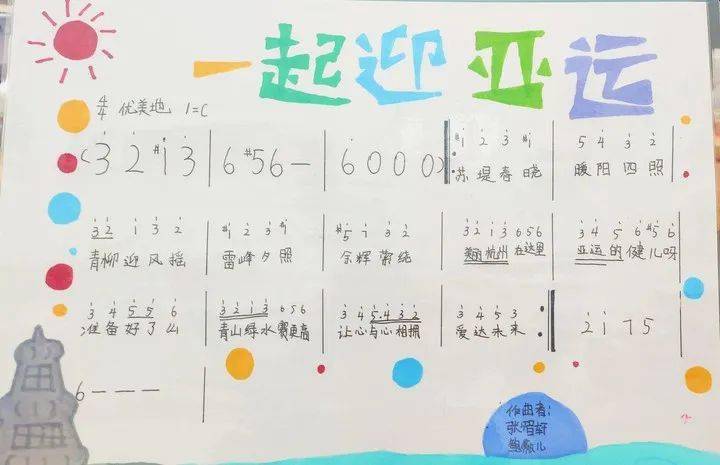 一起迎亚运
4/4 优美地 1=C
(3̇ 2̇ #1̇ 3̇ | 6 #5 6 — | 6̇ 0 0 0) ‖: #1̇ 2̇ 3̇ #1̇ | 5 4̇ 3̇ 2̇
苏堤春晓 暖阳四照
3̇2̇ 1̇ 3̇ 2̇ | #1̇ 2̇ 3̇ #1̇ | #5̇ 7 3̇ 2̇ | 3̇ 2̇ 1̇ 3̇ 6 5 6 | 3̇ 4̇ 5̇ 6̇ #5̇ 6̇
青柳迎风摇 雷峰夕照 余辉萦绕 杭州在这里 亚运的健儿呀
3̇ 4̇ 5̇ 5̇ 6̇ | 3̇ 2̇ 1̇ 3̇ 6 5 6 | 3̇ 4̇ 5̇·4̇ 3̇ 2̇ | 3̇ 4̇ 5̇ 3̇ :‖ 2̇ 1̇ 7 5
准备好了么 青山绿水赛更高 让心与心相拥 爱达未来
6 — — —
作曲者:
张湄轩
儿